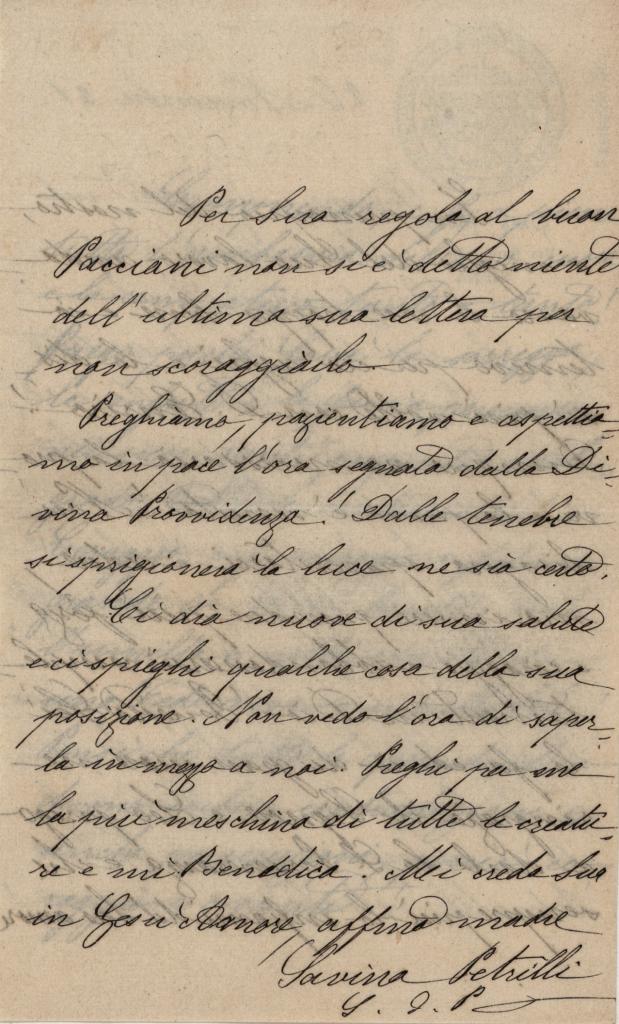 Per Sua regola al buon
Pacciani non si è detto niente
dell'ultima sua lettera per
non scoraggiarlo.
Preghiamo, pazientiamo e aspettia=
mo in pace l'ora segnata dalla Di=
vina Provvidenza! Dalle tenebre
si sprigionerà la luce ne sia certo.
Ci dia nuove di sua salute
e ci spieghi qualche cosa della sua
posizione. Non vedo l'ora di saper=
la in mezzo a noi. Preghi per me
la più meschina di tutte le creatu=
re e mi Benedica. Mi creda Sua
in Gesù Amore, affma madre
Savina Petrilli
S. d. P